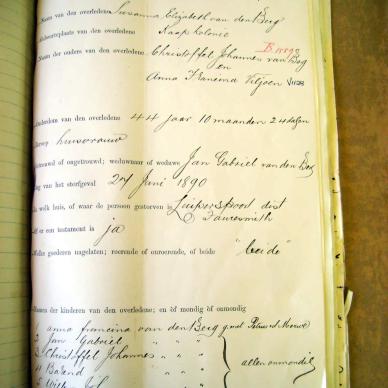 Naam van den overledene Susanna Elizabeth van den Berg
Geboorteplaats van den overledene Kaap Kolonie
Namen der ouders van den overledene Christoffel Johannes van den Berg
en
Anna Francina Viljoen
Ouderdom van den overledene 44 jaar 10 maanden 24 dagen
Beroep huisvrouw
Getrouwd of ongetrouwd; weduwnaar of weduwe Jan Gabriel van den Berg
Dag van het sterfgeval 27 Juni 1890
In welk huis, of waar de persoon gestorven is Luiperspoort dist
Fauresmith
Of er een testament is ja
Welke goederen nagelaten; roerende of onroerende, of beide "beide"
Namen der kinderen van den overledene; en òf mondig òf onmondig
1 Anna Francina van den Berg
2 Jan Gabriel " " "
3 Christoffel Johannes " " "
4 Barend " " "
allen onmondig
5